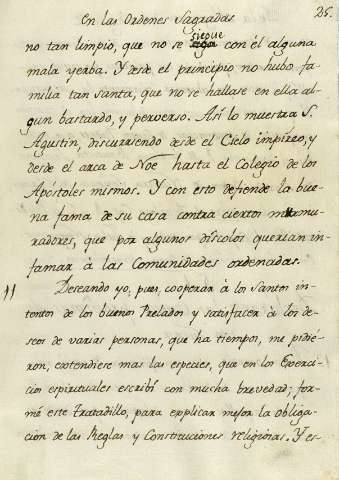 En las Ordenes Sagradas 25.
no tan limpio, que no se siegue con él alguna
mala yerba. Y desde el principio no hubo fa-
milia tan santa, que no se hallase en ella al-
gun bastardo, y perverso. Asi lo muestra S.
Agustin, discurriendo desde el Cielo impireo, y
desde el arca de Noe hasta el Colegio de los
Apóstoles mismos. Y con esto defiende la bue-
na fama de su casa contra ciertos murmu-
radores, que por algunos discolos querian in-
famar à las Comunidades ordenadas.
11 Deseando yo, pues, cooperar à los Santos in-
tentos de los buenos Prelados y satisfacer à los de-
seos de varias personas, que ha tiempos, me pidié-
ron, extendiese mas las especies, que en los Exerci-
cios espirituales escribí con mucha brevedad; for-
mé este Tratadillo, para explicar mejor la obliga-
cion de las Reglas y Constituciones religiosas. Y es-